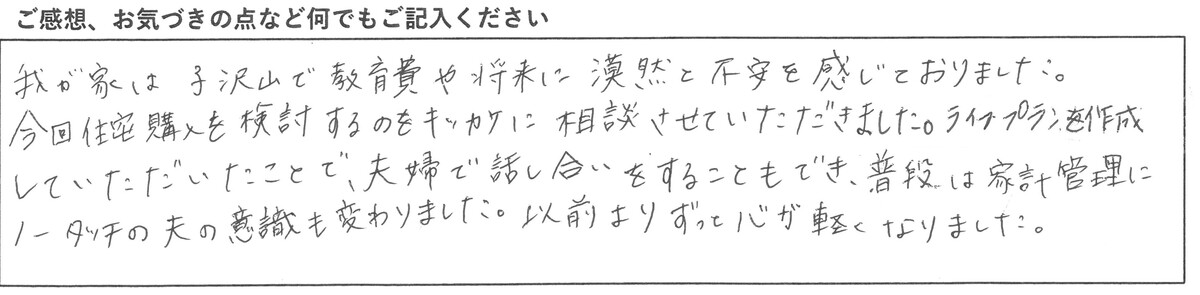 ご感想、お気づきの点など何でもご記入ください
我が家は子沢山で教育費や将来に漠然と不安を感じておりました。
今回住宅購入を検討するのをキッカケに相談させていただきました。ライフプランを作成
していただいたことで、夫婦で話し合いをすることもでき、普段は家計管理に
ノータッチの夫の意識も変わりました。以前よりずっと心が軽くなりました。